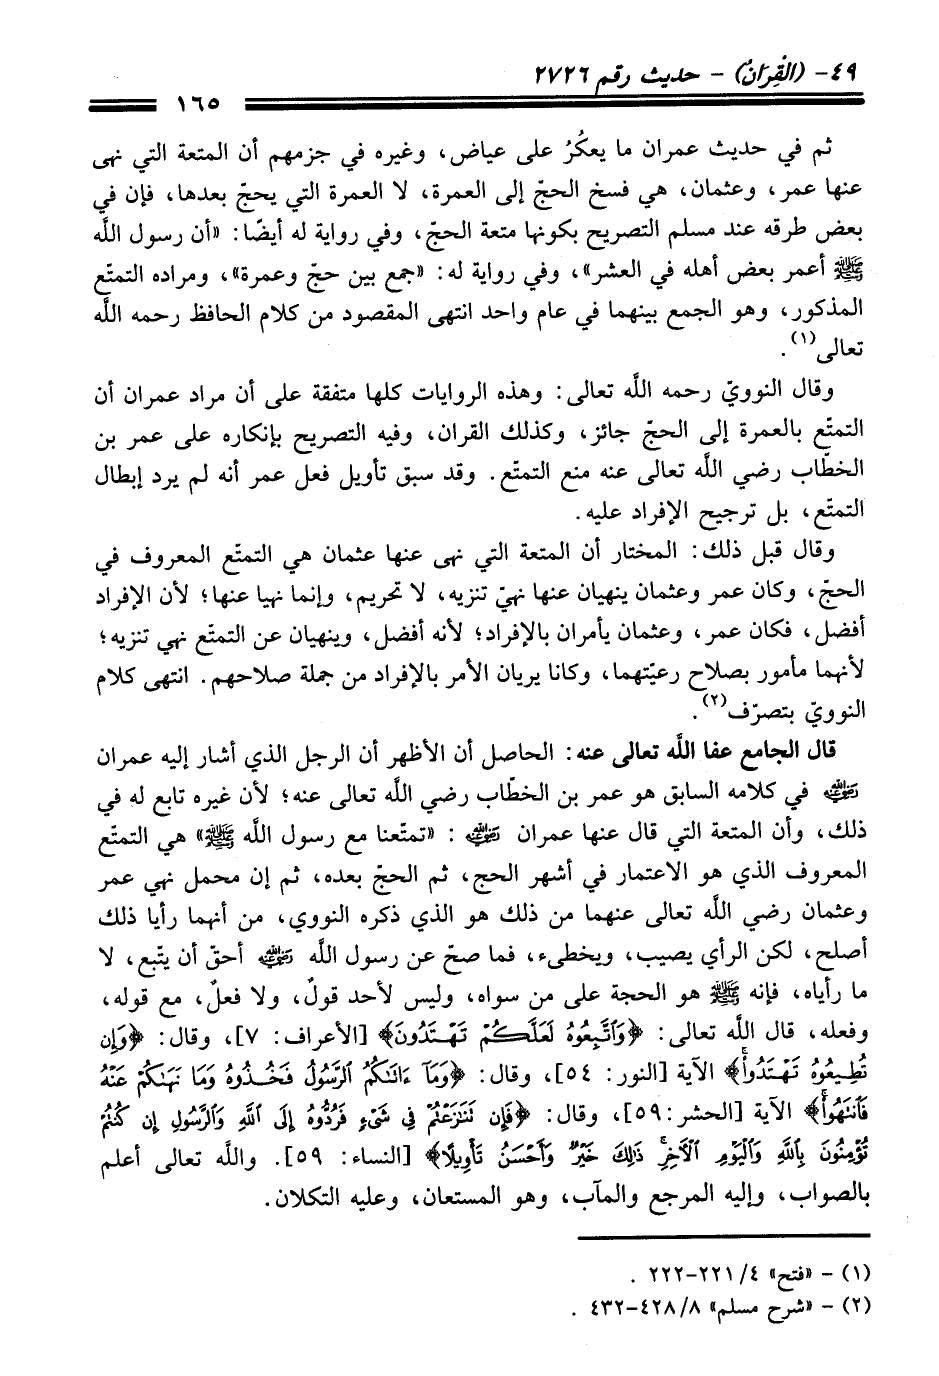 ٤٩- (الْقِرَانُ) - حديث رقم ٢٧٢٦
١٦٥
ثم في حديث عمران ما يعكُرُ على عياض، وغيره في جزمهم أن المتعة التي نهى
عنها عمر، وعثمان، هي فسخ الحجّ إلى العمرة، لا العمرة التي يحجّ بعدها، فإن في
بعض طرقه عند مسلم التصريح بكونها متعة الحجّ، وفي رواية له أيضًا: «أن رسول اللَّه
ﷺ أعمر بعض أهله في العشر»، وفي رواية له: «جمع بين حجّ وعمرة»، ومراده التمتّع
المذكور، وهو الجمع بينهما في عام واحد انتهى المقصود من كلام الحافظ رحمه اللَّه
تعالى(١).
وقال النوويّ رحمه اللَّه تعالى: وهذه الروايات كلها متفقة على أن مراد عمران أن
التمتّع بالعمرة إلى الحجّ جائز، وكذلك القران، وفيه التصريح بإنكاره على عمر بن
الخطّاب رضي اللَّه تعالى عنه منع التمتّع. وقد سبق تأويل فعل عمر أنه لم يرد إبطال
التمتّع، بل ترجيح الإفراد عليه.
وقال قبل ذلك: المختار أن المتعة التي نهى عنها عثمان هي التمتّع المعروف في
الحجّ، وكان عمر وعثمان ينهيان عنها نهيَ تنزيه، لا تحريم، وإنما نهيا عنها؛ لأن الإفراد
أفضل، فكان عمر، وعثمان يأمران بالإفراد؛ لأنه أفضل، وينهيان عن التمتّع نهي تنزيه؛
لأنهما مأمور بصلاح رعيّتهما، وكانا يريان الأمر بالإفراد من جملة صلاحهم. انتهى كلام
النوويّ بتصرّف(٢).
قال الجامع عفا اللَّه تعالى عنه: الحاصل أن الأظهر أن الرجل الذي أشار إليه عمران
رضي الله عنه في كلامه السابق هو عمر بن الخطّاب رضي اللَّه تعالى عنه؛ لأن غيره تابع له في
ذلك، وأن المتعة التي قال عنها عمران رضي الله عنه: «تمتّعنا مع رسول اللَّه ﷺ» هي التمتّع
المعروف الذي هو الاعتمار في أشهر الحج، ثم الحجّ بعده، ثم إن محمل نهي عمر
وعثمان رضي اللَّه تعالى عنهما من ذلك هو الذي ذكره النووي، من أنهما رأيا ذلك
أصلح، لكن الرأي يصيب، ويخطىء، فما صحّ عن رسول اللَّه رضي الله عنه أحقّ أن يتّبع، لا
ما رأياه، فإنه ﷺ هو الحجة على من سواه، وليس لأحد قولٌ، ولا فعلٌ، مع قوله،
وفعله، قال اللَّه تعالى: ﴿وَاتَّبِعُوهُ لَعَلَّكُمْ تَهْتَدُونَ﴾ [الأعراف: ٧]، وقال: ﴿وَإِن
تُطِيعُوهُ تَهْتَدُواْ﴾ الآية [النور: ٥٤]، وقال: ﴿وَمَآ ءَاتَىٰكُمُ الرَّسُولُ فَخُذُوهُ وَمَا نَهَىٰكُمْ عَنْهُ
فَانتَهُواْ﴾ الآية [الحشر:٥٩]، وقال: ﴿فَإِن تَنَٰزَعْتُمْ فِي شَيْءٍ فَرُدُّوهُ إِلَى اللَّهِ وَالرَّسُولِ إِن كُنتُمْ
تُؤْمِنُونَ بِاللَّهِ وَالْيَوْمِ الْآخِرِ ذَٰلِكَ خَيْرٌ وَأَحْسَنُ تَأْوِيلًا﴾ [النساء: ٥٩]. واللَّه تعالى أعلم
بالصواب، وإليه المرجع والمآب، وهو المستعان، وعليه التكلان.
(١) - «فتح» ٤/ ٢٢١-٢٢٢ .
(٢) - «شرح مسلم» ٨/ ٤٢٨-٤٣٢ .